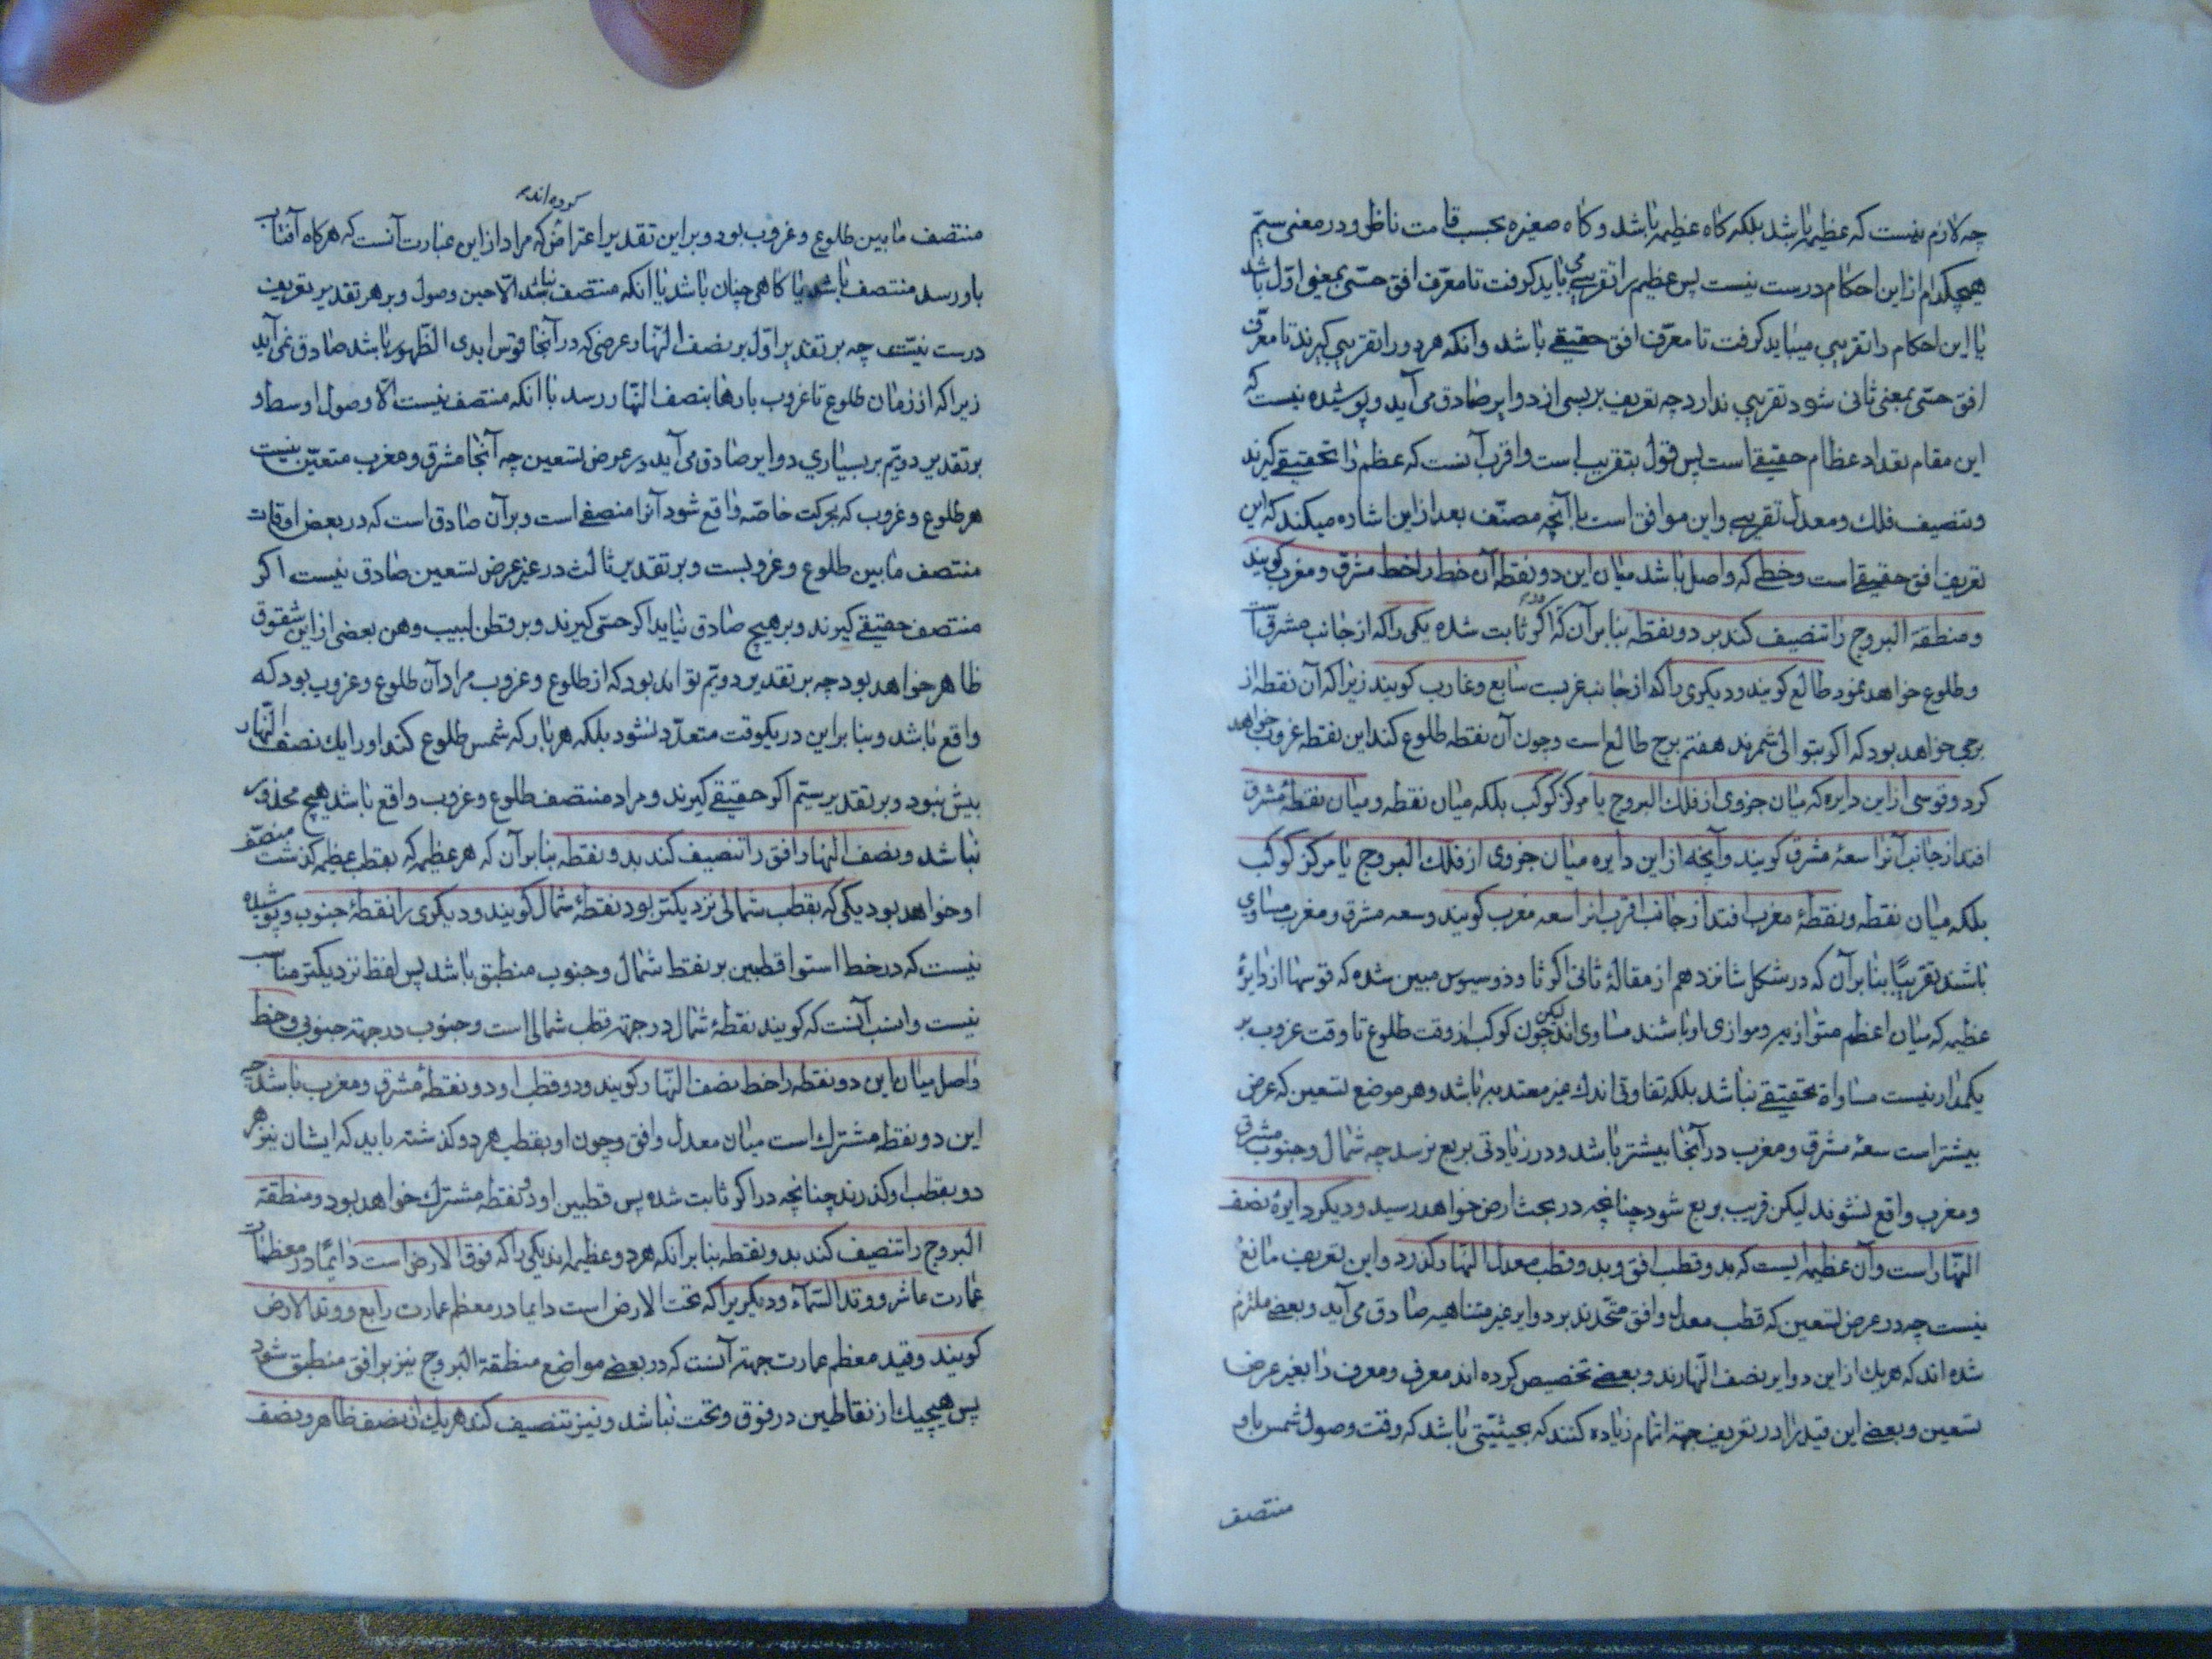 چه لازم نیست که عظیمه باشد بلکه کاه عظیمه باشد و کاه صغیره بحسب قامت ناظر و در معنی سیّم
هیچکدام از این احکام درست نیست پس عظیم را تقریبی می باید کرفت تا معرّف افق حسّی بمعنی اوّل باشد
یا این احکام را تقریبی میباید کرفت تا معرّف افق حقیقے باشد و انکه هر دو را تقریبی کیرند تا معرّف
افق حسّی بمعنی ثانی شود تقریبی ندارد چه تعریف بر بسی از دوایر صادق می آید و پوشیده نیست که
این مقام تعداد عظام حقیقے است پس قول بتقریب است و اقرب آنست که عظم را تحقیقے کیرند
و تنصیف فلک و معدل تقریبی و این موافق است با آنچه مصنّف بعد از این اشاره میکند که این
تعریف افق حقیقے است و خطے که واصل باشد میان این دو نقطه آن خط را خط مشرق و مغرب کویند
و منطقة البروج را تنصیف کند بر دو نقطه بنا بر آن که در اکر ثابت شده یکی را که از جانب مشرق است
و طلوع خواهد نمود طالع کویند و دیکری را که از جانب غربست سابع و غارب کویند زیرا که آن نقطه از
برجی خواهد بود که اکر بتوالی شمرند هفتم برج طالع است و چون آن نقطه طلوع کند این نقطه غروب خواهد
کرد و قوسی از این دایره که میان جزوی از فلک البروج یا مرکز کوکب بلکه میان نقطه و میان نقطۀ مشرق
افتد از جانب آنرا سعۀ مشرق کویند و آنچه از این دایره میان جزوی از فلک البروج یا مرکز کوکب
بلکه میان نقطه و نقطۀ مغرب افتد از جانب اقرب انرا سعه مغرب کویند و سعه مشرق و مغرب مساوی
باشند تقریبًا بنا بر آن که در شکل شانزدهم از مقالۀ ثانی اکر ثاوذوسیوس مبین شده که قوسها از دایرۀ
عظیمه که میان اعظم متوازیه و موازی او باشند مساوی اند لیکن چون کوکب از وقت طلوع تا وقت غروب بر
یکمدار نیست مساواة تحقیقے نباشد بلکه تفاوتی اندک غیر معتد به باشد و هر موضع تسعین که عرض
بیشتر است سعۀ مشرق و مغرب در آنجا بیشتر باشد و در زیادتی بربع نرسد چه شمال و جنوب مشرق
و مغرب واقع نشوند لیکن قریب بربع شود چنانچه در بحث ارض خواهد رسید و دیکر دایرۀ نصف
النّهار است و آن عظیمه ایست که بدو قطب افق و بدو قطب معدل النّهار کذرد و این تعریف مانع
نیست چه در عرض تسعین که قطب معدل و افق متّحدند بر دوایر غیر متناهیه صادق می آید و بعضے ملتزم
شده اند که هریک از این دوایر نصف النّهارند و بعضے تخصیص کرده اند معرف و معرف را بغیر عرض
تسعین و بعضے این قید را در تعریف جهة اتمام زیاده کنند که بحیثیّتی باشد که وقت وصول شمس باو
منتصف
کرده اند
منتصف مابین طلوع و غروب بود و بر این تقدیر اعتراض که مراد از این عبارت آنست که هرکاه آفتاب
باو رسد منتصف باشد یا کاهی چنان باشد یا انکه منتصف نباشد الّا حین وصول و بر هر تقدیر تعریف
درست نیست چه بر تقدیر اوّل بر نصف النّهار عرضی که در آنجا قوس ابدی الظّهور باشد صادق نمی آید
زیرا که از زمان طلوع تا غروب بارها بنصف النّهار رسد با انکه منتصف نیست الّا وصول اوسط و
بر تقدیر دویّم بر بسیاری دوایر صادق می آید در عرض تسعین چه آنجا مشرق و مغرب متعیّن نیست
هر طلوع و غروب که بحرکت خاصّه واقع شود آنرا منصفے است و بر آن صادق است که در بعض اوقات
منتصف مابین طلوع و غروبست و بر تقدیر ثالث در غیر عرض تسعین صادق نیست اکر
منتصف حقیقے کیرند و بر هیچ صادق نیاید اکر حسّی کیرند و بر فطن لبیب وهن بعضی از این شقوق
ظاهر خواهد بود چه بر تقدیر دویّم تواند بود که از طلوع و غروب مراد آن طلوع و غروب بود که
واقع باشد و بنا بر این در یکوقت متعدّد نشود بلکه هر بار که شمس طلوع کند او را یک نصف النّهار
بیش نبود و بر تقدیر سیّم اکر حقیقے کیرند و مراد منتصف طلوع و غروب واقع باشد هیچ محذور
نباشد و نصف النهار افق را تنصیف کند بدو نقطه بنا بر آن که هر عظیمه که بقطب عظیمه کذشت منصّف
او خواهد بود یکی که بقطب شمالی نزدیکتر بود نقطۀ شمال کویند و دیکری را نقطۀ جنوب و پوشیده
نیست که در خط استوا قطبین بر نقط شمال و جنوب منطبق باشد پس لفظ نزدیکتر مناسب
نیست و انسب آنست که کویند نقطۀ شمال در جهتہ قطب شمالی است و جنوب در جهتہ جنوبی و خط
واصل میان این دو نقطه را خط نصف النّهار کویند و دو قطب او دو نقطۀ مشرق و مغرب باشد چه
این دو نقطه مشترک است میان معدل و افق و چون او بقطب هر دو کذشته باید که ایشان نیز هر
دو بقطب او کذرند چنانچه در اکر ثابت شده پس قطبین او دو نقطه مشترک خواهد بود و منطقة
البروج را تنصیف کند بدو نقطه بنا بر انکه هر دو عظیمه اند یکی را که فوق الارض است دایمًا در معظمات
عمارت عاشر و وتد السّمآء و دیکریرا که تحت الارض است دایما در معظم عمارت رابع و وتد الارض
کویند و قید معظم عمارت جهتہ آنست که در بعضے مواضع منطقة البروج نیز بر افق منطبق شود
پس هیچیک از نقاطین در فوق و تحت نباشد و نیز تنصیف کند هریک از نصف ظاهر و نصف